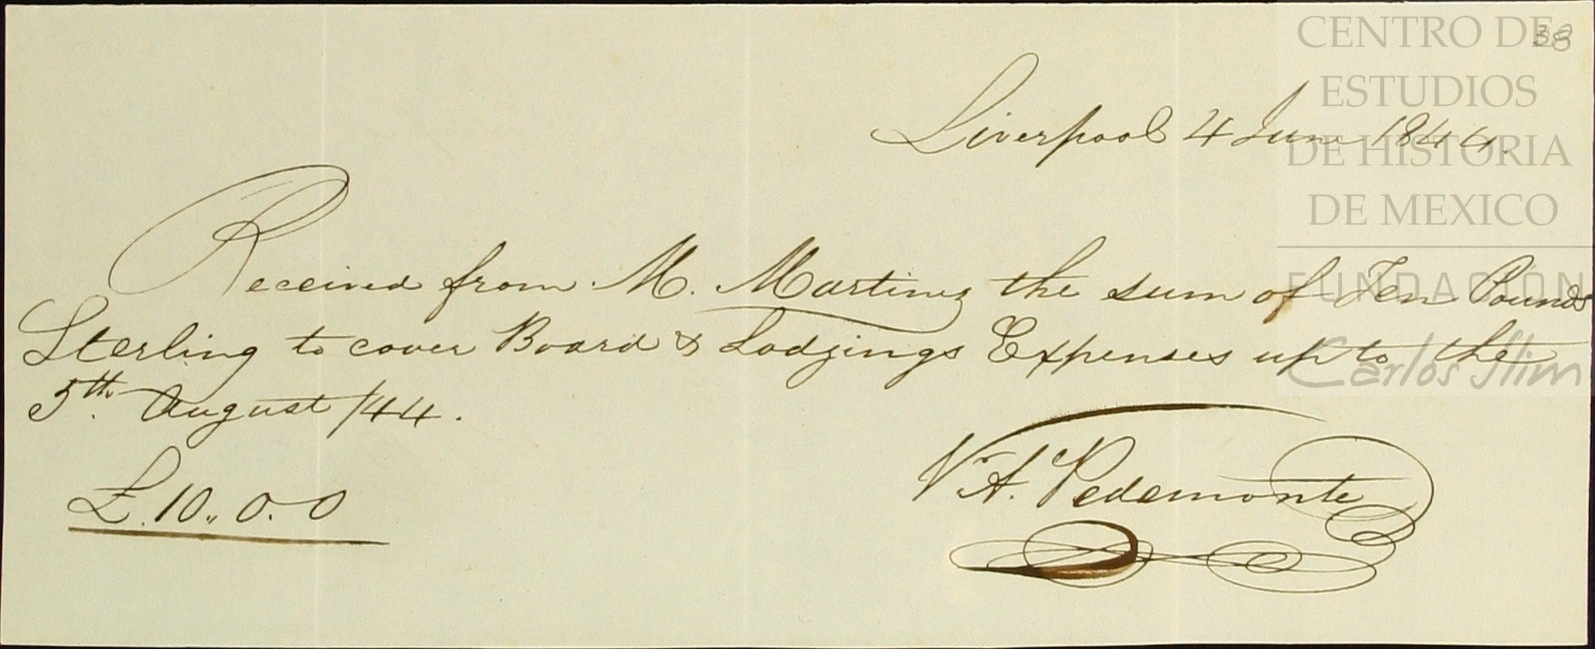 38
CENTRO DE
ESTUDIOS
DE HISTORIA
DE MEXICO
FUNDACIÓN
Carlos Slim
Liverpool 4 June 1844.
Received from M. Martinez the sum of Ten Pounds
Sterling to cover Board & Lodgings Expenses up to the
5th. August /44.
£.10,,0.0
V. A. Pedemonte